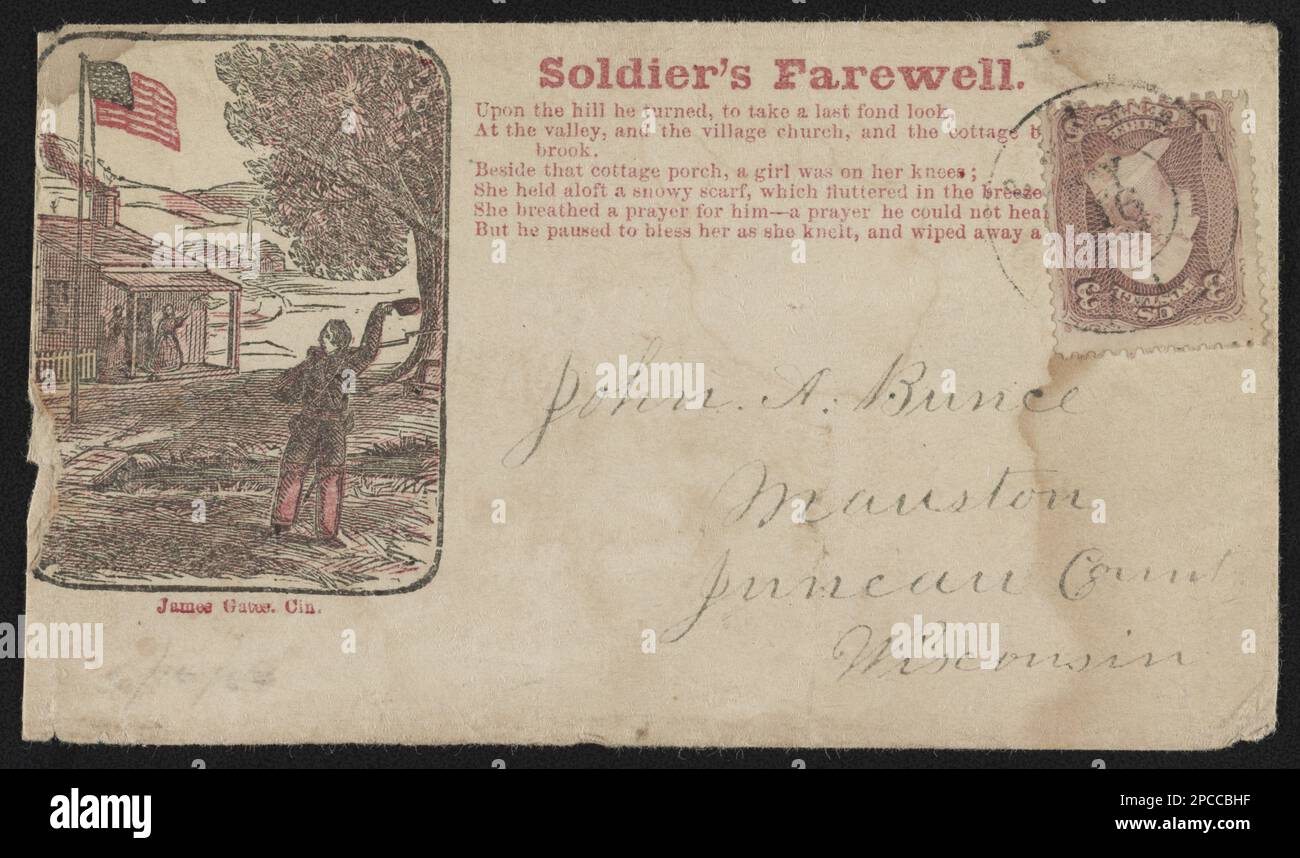 Soldier's Farewell.
Upon the hill he turned, to take a last fond look
At the valley, and the village church, and the cottage b
brook.
Beside that cottage porch, a girl was on her knees;
She held aloft a snowy scarf, which fluttered in the breeze
She breathed a prayer for him—a prayer he could not hea
But he paused to bless her as she knelt, and wiped away a
3
U.S.
3
John. A. Bunce
Mauston
Juneau Count
Wisconsin
James Gates. Cin.
alamy
Image ID: 2PCCBHF
www.alamy.com